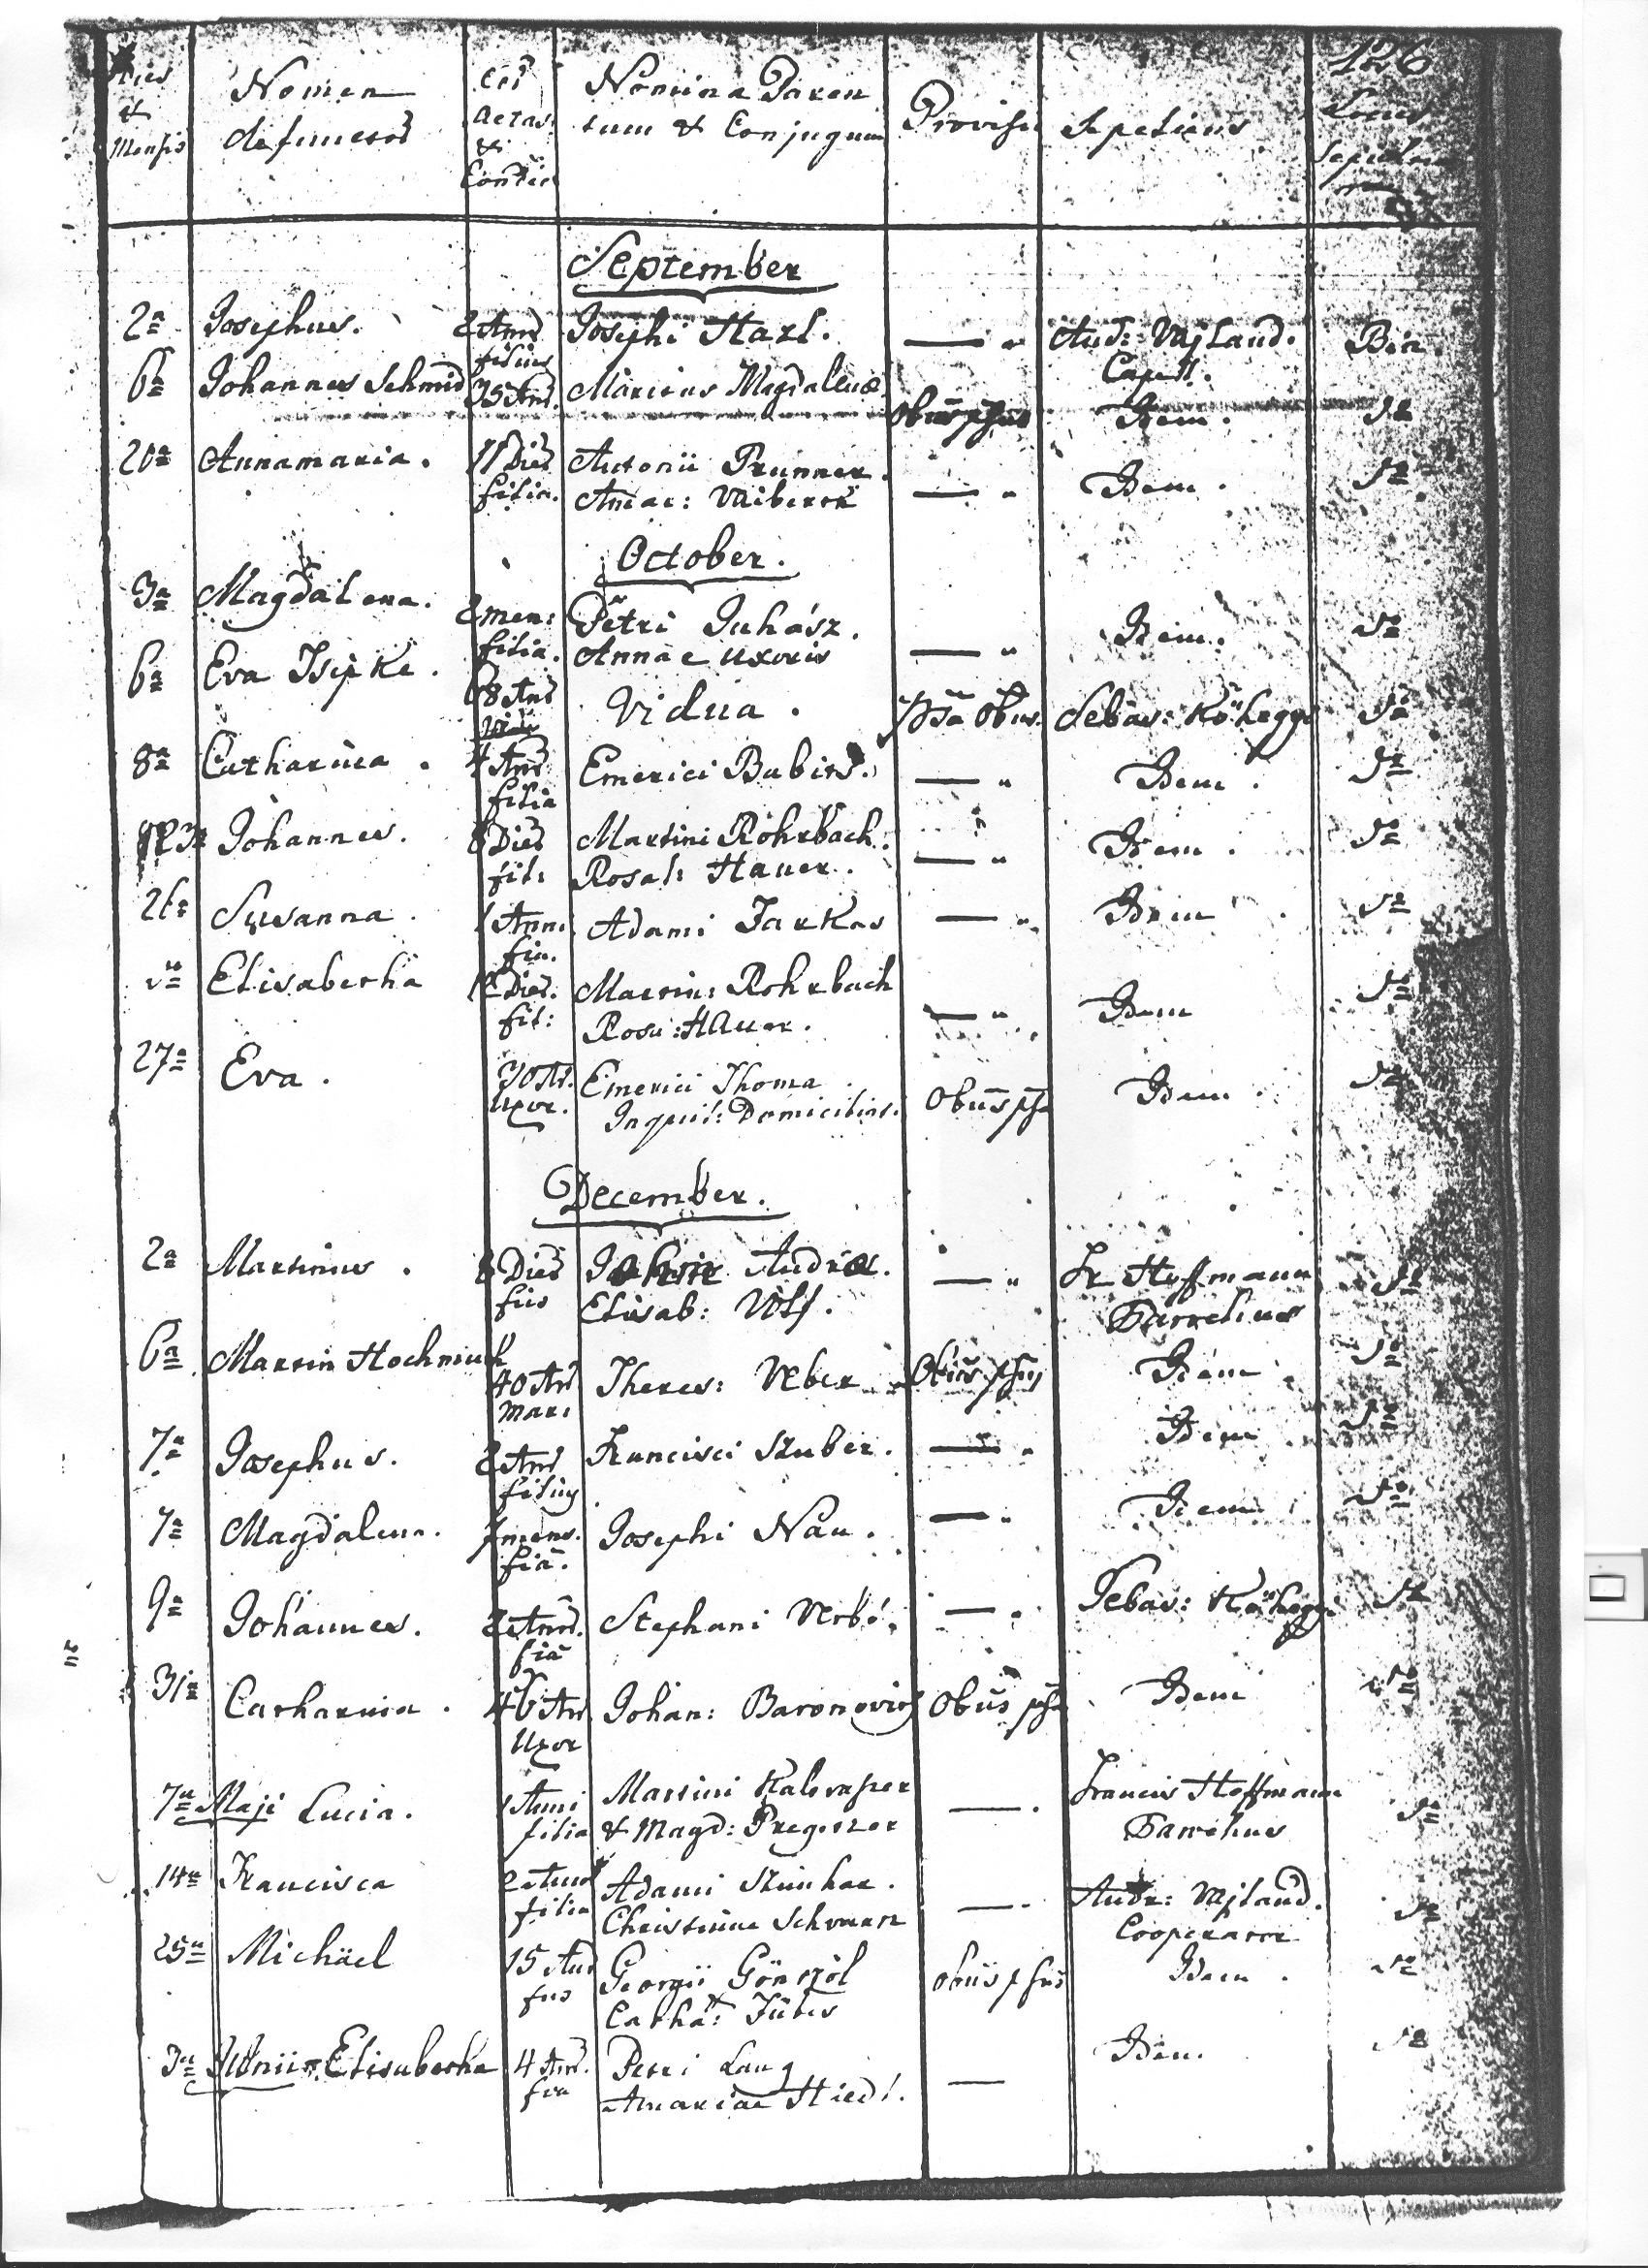 126
Dies & Mensis
Nomen defunctor
aetas & Condit
Nomina Paren tum & Conjugum
Provisi
Sepeliens
Locus
September
2a Josephus. 2 Ann filius Josephi Harl. — " And: Vajland. Capell. Bin.
6a Johannes Schmid 35 Ann. Maritus Magdalenae. Obus pSus Idem. do
20a Annamaria. 11 Dies filia. Antonii Prunner. — " Idem. do
Annae: Vaiberin
October.
3a Magdalena. 2 men: filia. Petri Juhász. Annae uxoris — " Idem. do
6a Eva Isipke. 68 Ann Vidua. pSa Obus. Sebas: Kőhegyi do
8a Catharina. 4 Ann filia Emerici Babits. — " Idem. do
Johannes. 8 Dies fil: Martini Rohrbach. Rosal: Hauer. — " Idem. do
26a Susanna. 1 Ann. fia. Adami Farkas — " Idem. do
do Elisabetha 12 Dies. fil: Martin: Rohrbach Rosa: Hauer. — " Idem do
27a Eva. 30 An. Uxor. Emerici Thoma Inquil: Domicilins. Obus pSa Idem. do
December.
2a Martinus. 8 Dies fius Andrae. Elisab: Volf. — " Fr Hoffmann Parochus do
6a Martin Hochmuth 40 An Mari Theres: Veber Obus pSus Idem do
7a Josephus. 2 Ann filius Francisci Szuber. — " Idem do
7a Magdalena. 7 mens. fia. Josephi Nau. — " Idem do
9a Johannes. 2 Ann. fia Stephani Verbó. — " Sebas: Kőhegyi do
31a Catharina. 46 An Uxor Johan: Baronovics Obus pSa Idem do
7a Maji Lucia. 1 Anni filia Martini & Magd: Pregerzer — . Francis Hoffmann Parochus do
14a Francisca 2 Ann filia Adami Szinhar. Christinae Schvarcz — . Andr: Vajland. Cooperator do
25a Michäel 15 Ann fius Georgii Gönczöl Catha: Jübes obus pSus Idem. do
3a Junii Elisabetha 4 Ann. fia Petri Lang Amariae Hiedl. — Idem. do